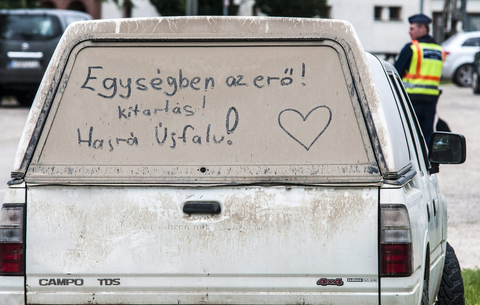 Egységben az erő!
kitartás!
Hajrá Újfalu!
CAMPO TDS 4x4